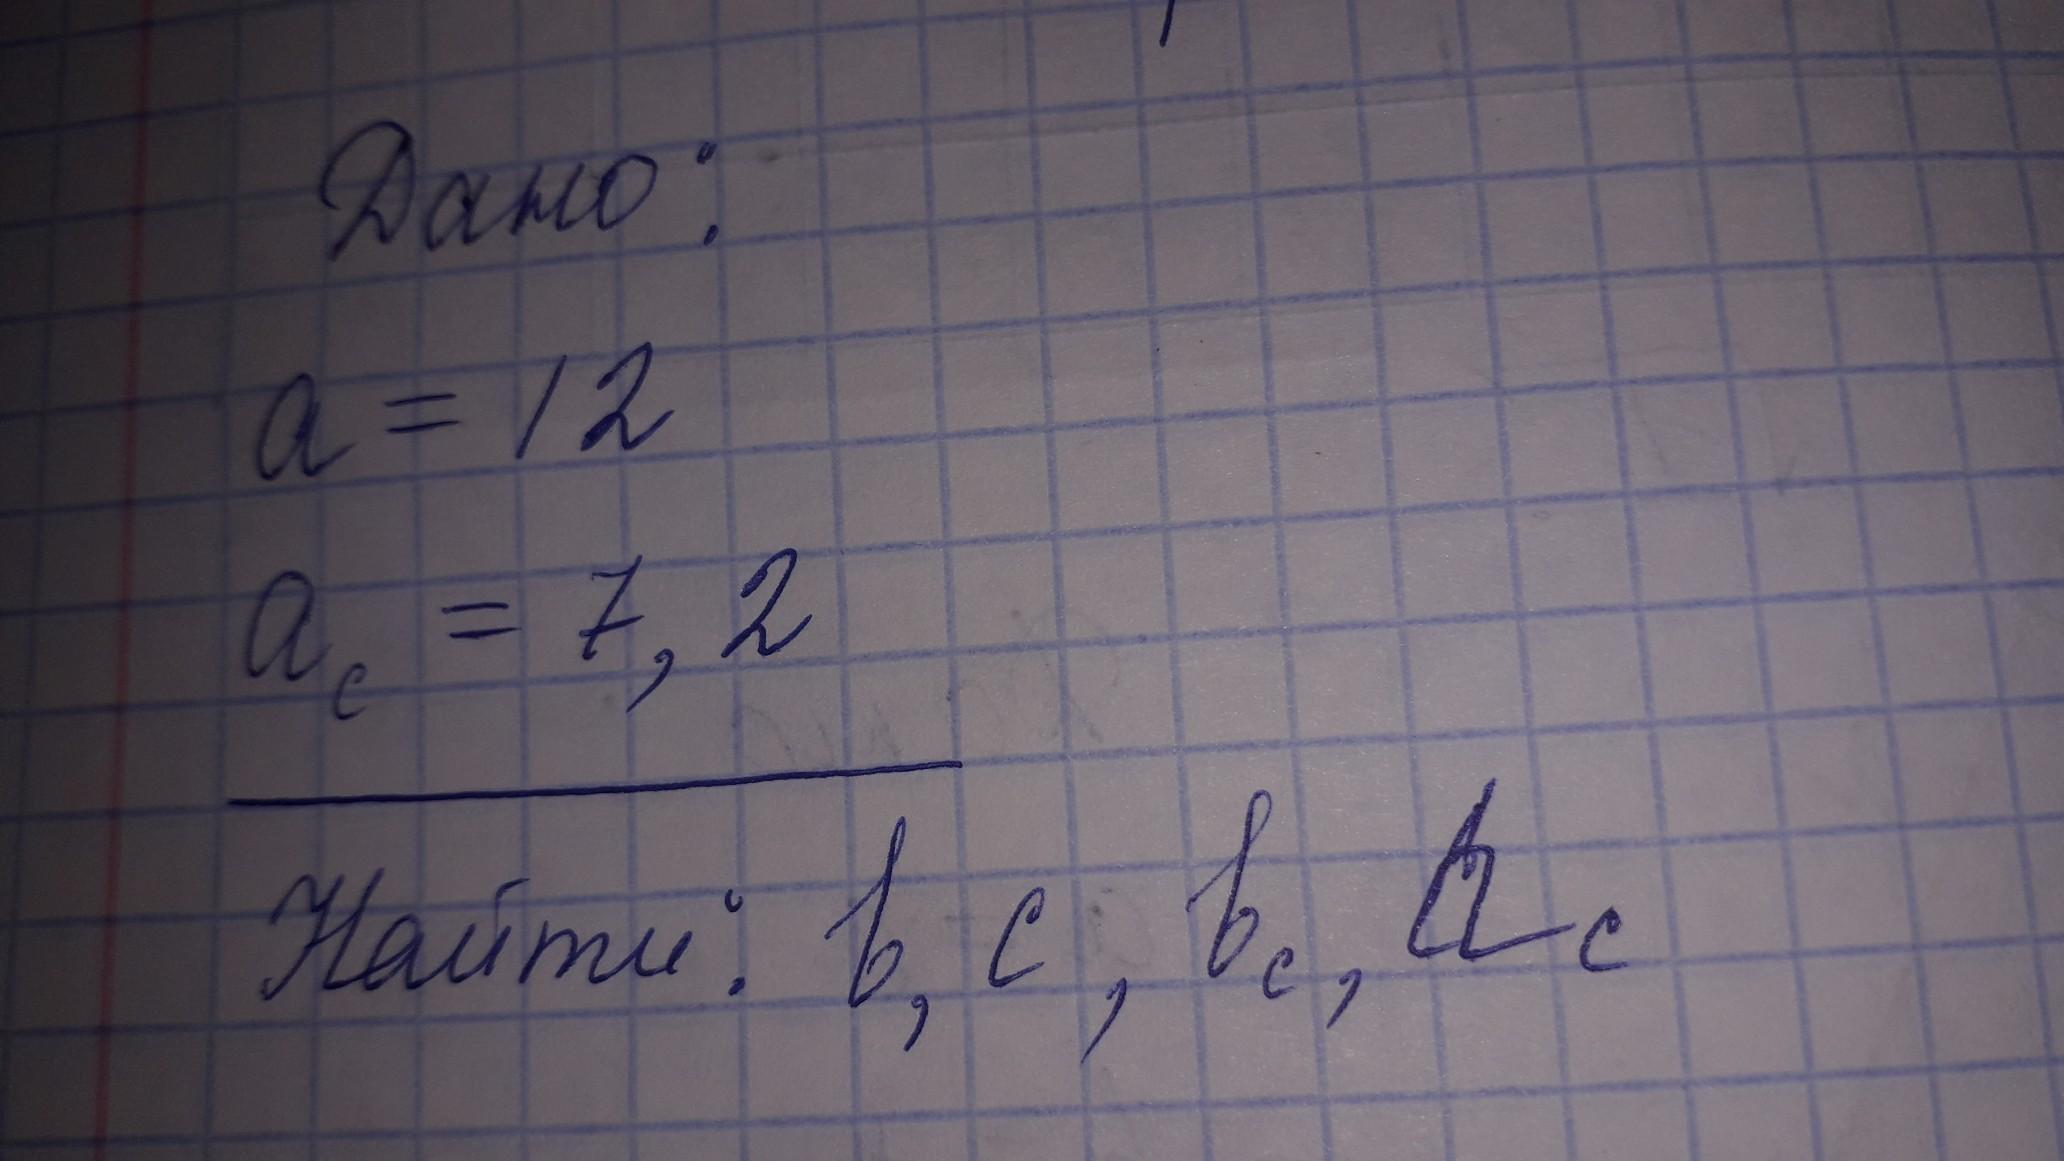 Дано:
a = 12
a_c = 7,2
Найти: b, c, b_c, h_c